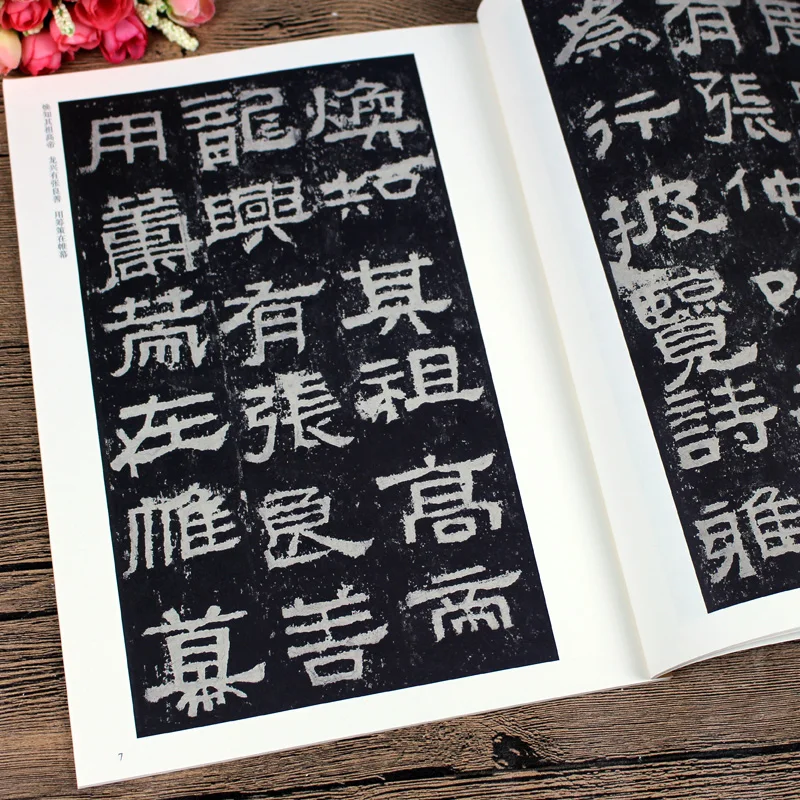 周
有張仲
為行披覽詩雅
煥知其祖高帝
龍興有張良善
用籌策在帷幕
焕知其祖高帝 龙兴有张良善 用筹策在帷幕
7